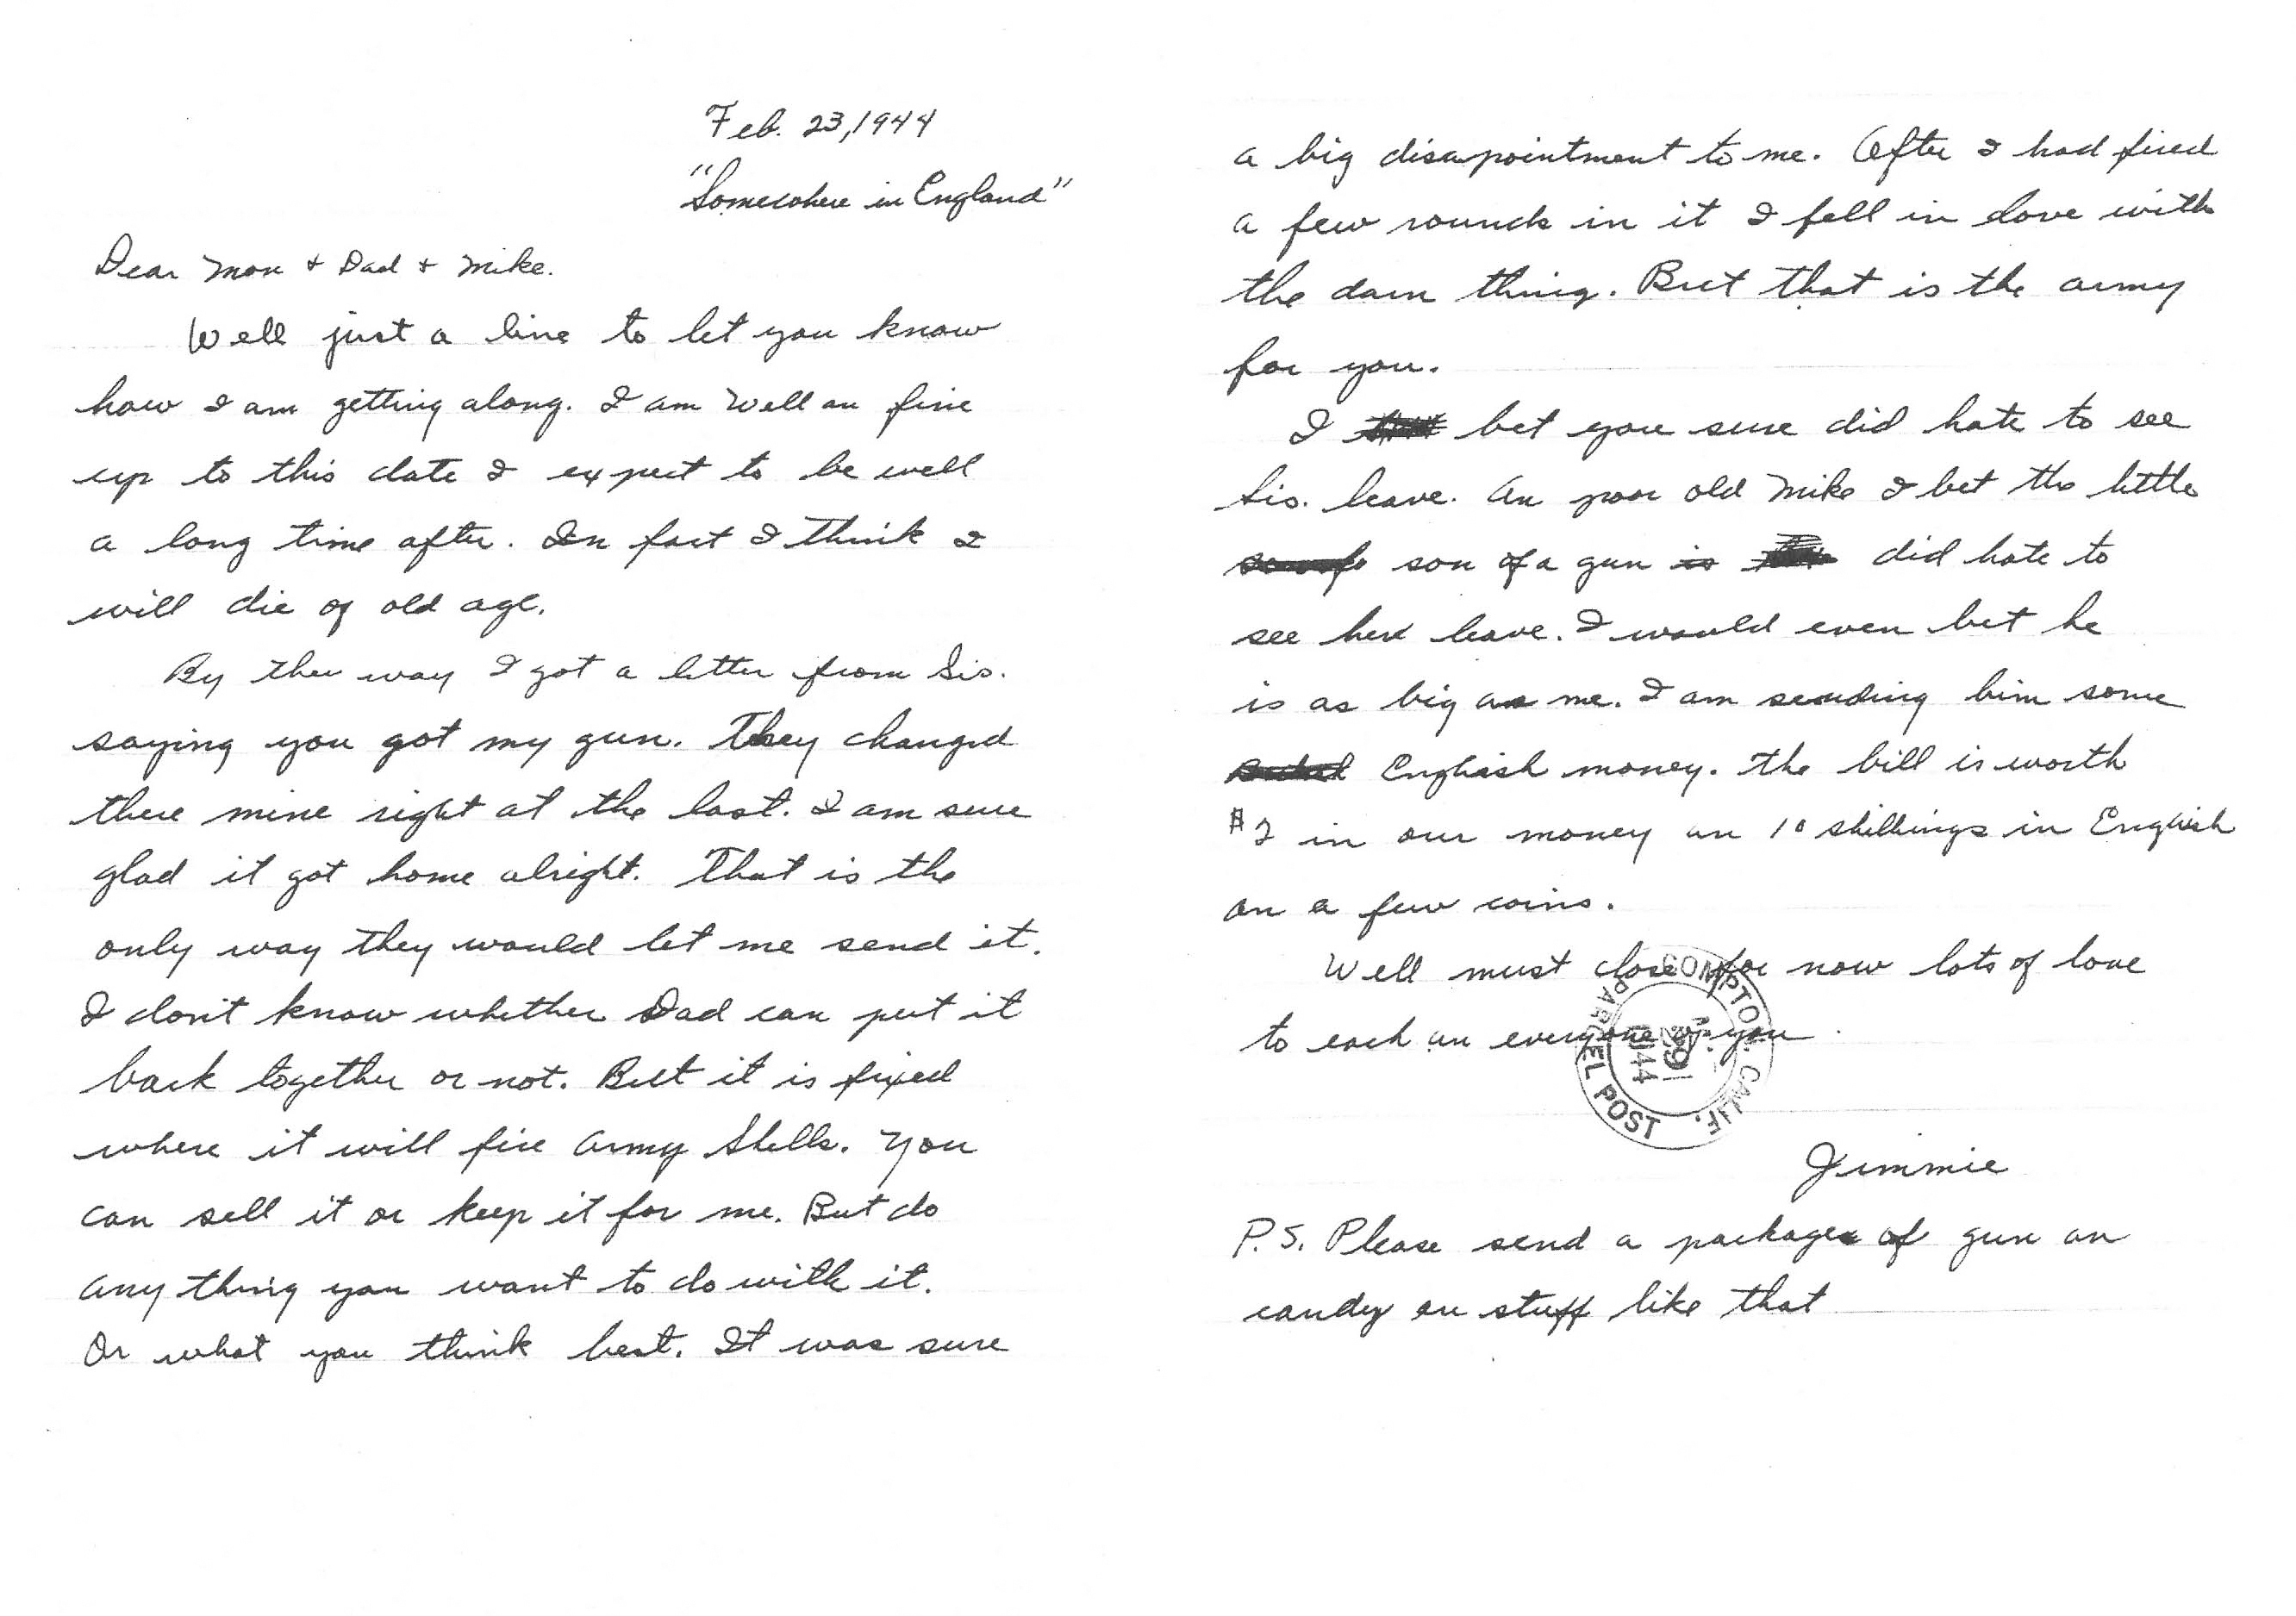 Feb. 23, 1944
"Somewhere in England"
Dear Mom + Dad + Mike.
Well just a line to let you know
how I am getting along. I am well an fine
up to this date I expect to be well
a long time after. In fact I think I
will die of old age.
By thee way I got a letter from Sis.
saying you got my gun. They changed
there mine right at the last. I am sure
glad it got home alright. That is the
only way they would let me send it.
I don't know whether Dad can put it
back together or not. But it is fixed
where it will fire Army Shells. You
can sell it or keep it for me. But do
any thing you want to do with it.
Or what you think best. It was sure
a big disapointment to me. After I had fired
a few rounds in it I fell in love with
the darn thing. But that is the army
for you.
I bet you sure did hate to see
Sis. leave. An poor old Mike I bet the little
son of a gun is did hate to
see her leave. I would even bet he
is as big as me. I am sending him some
English money. The bill is worth
$2 in our money an 10 shillings in English
an a few coins.
Well must close for now lots of love
to each an everyone of you.
COMPTON, CALIF.
PARCEL POST
1944
Jimmie
P.S. Please send a package of gun an
candy an stuff like that